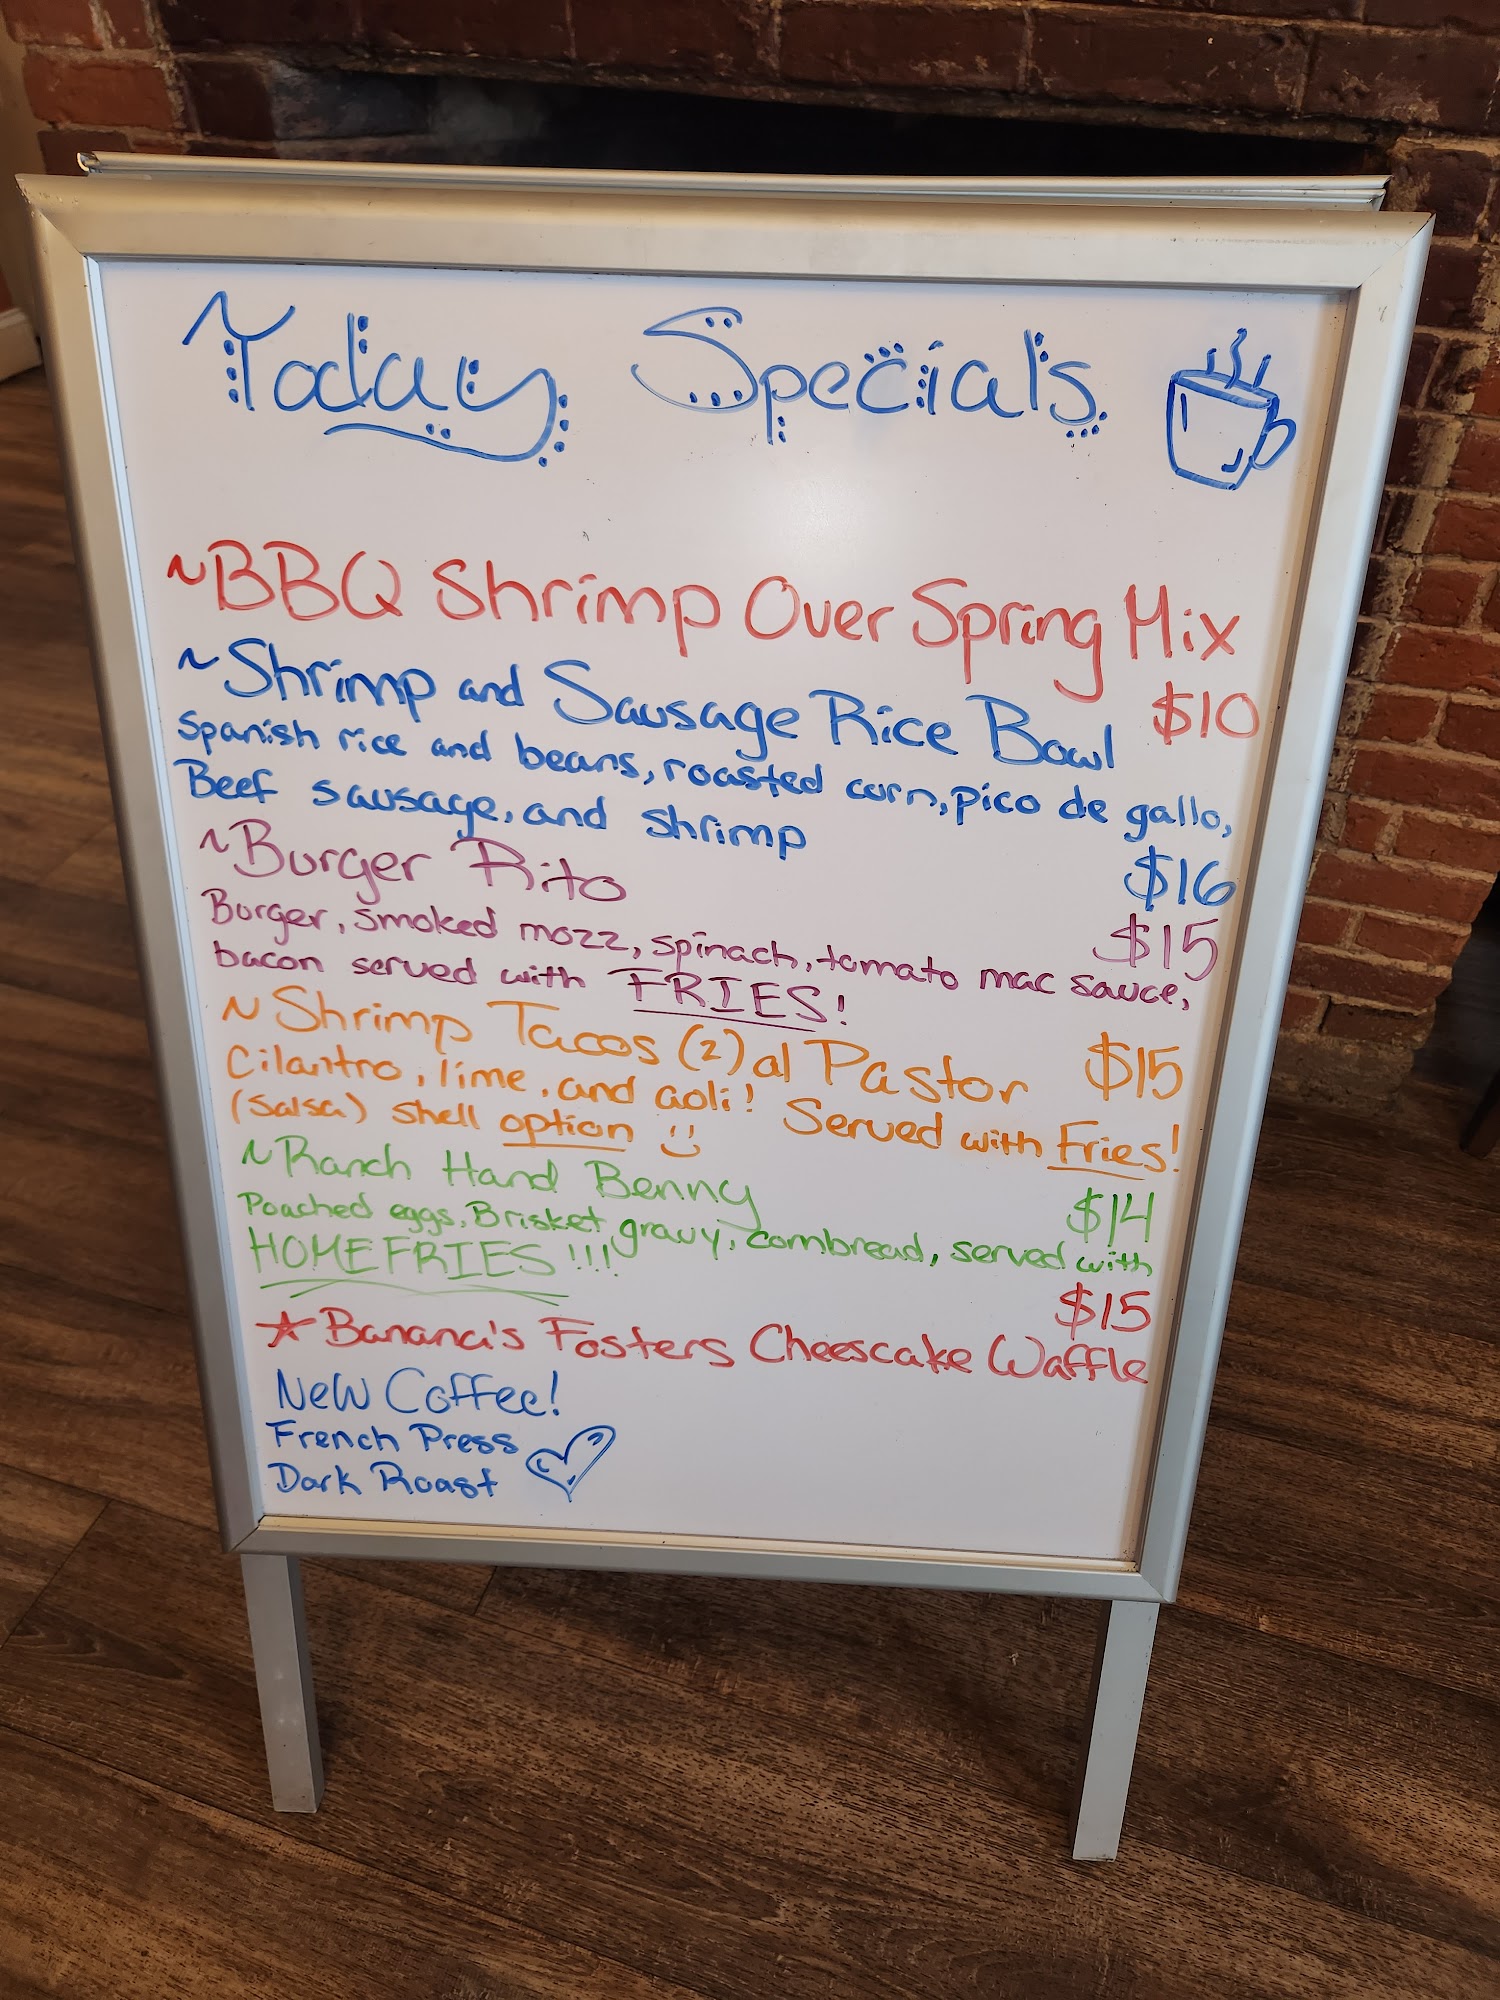 Today Specials
~BBQ Shrimp Over Spring Mix
$10
~Shrimp and Sausage Rice Bowl
Spanish rice and beans, roasted corn, pico de gallo,
Beef sausage, and shrimp
$16
~Burger Rito
$15
Burger, smoked mozz, spinach, tomato mac sauce,
bacon served with FRIES!
~Shrimp Tacos (2) al Pastor $15
Cilantro, lime, and aoli! Served with Fries!
(Salsa) shell option
~Ranch Hand Benny $14
Poached eggs, Brisket gravy, cornbread, served with
HOMEFRIES!!!
$15
☆Banana's Fosters Cheescake Waffle
New Coffee!
French Press
Dark Roast